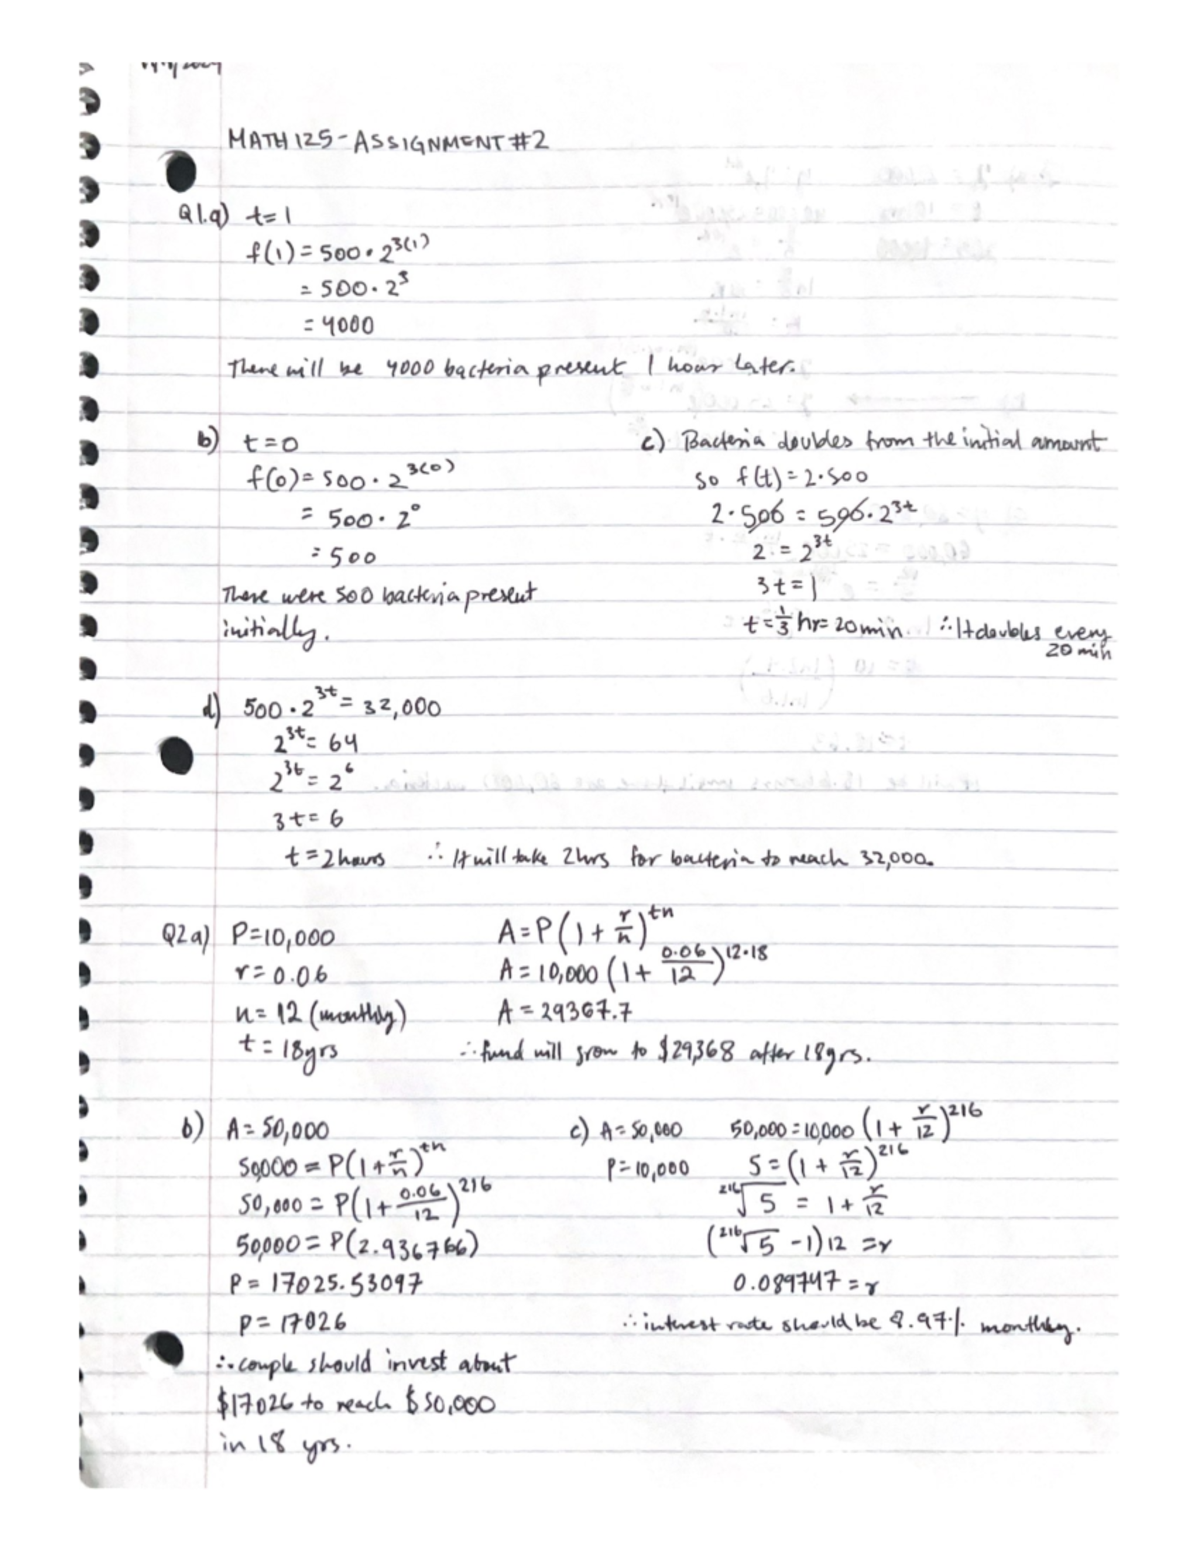 MATH 125 - ASSIGNMENT #2
Q1.a) t=1
f(1) = 500 · 2^3(1)
= 500 · 2^3
= 4000
There will be 4000 bacteria present 1 hour later.
b) t=0
f(0) = 500 · 2^3(0)
= 500 · 2^0
= 500
There were 500 bacteria present
initially.
c) Bacteria doubles from the initial amount
so f(t) = 2·500
2·500 = 500·2^3t
2 = 2^3t
3t = 1
t = 1/3 hr = 20 min ∴ It doubles every
20 min
d) 500 · 2^3t = 32,000
2^3t = 64
2^3t = 2^6
3t = 6
t = 2 hours ∴ It will take 2hrs for bacteria to reach 32,000.
Q2 a) P=10,000
r = 0.06
n = 12 (monthly)
t = 18yrs
A = P(1 + r/n)^tn
A = 10,000 (1 + 0.06/12)^12·18
A = 29367.7
∴ fund will grow to $29,368 after 18yrs.
b) A = 50,000
50,000 = P(1 + r/n)^tn
50,000 = P(1 + 0.06/12)^216
50,000 = P(2.936766)
P = 17025.53097
P = 17026
∴ couple should invest about
$17026 to reach $50,000
in 18 yrs.
c) A = 50,000
P = 10,000
50,000 = 10,000 (1 + r/12)^216
5 = (1 + r/12)^216
216√5 = 1 + r/12
(216√5 - 1)12 = r
0.089747 = r
∴ interest rate should be 8.97% monthly.